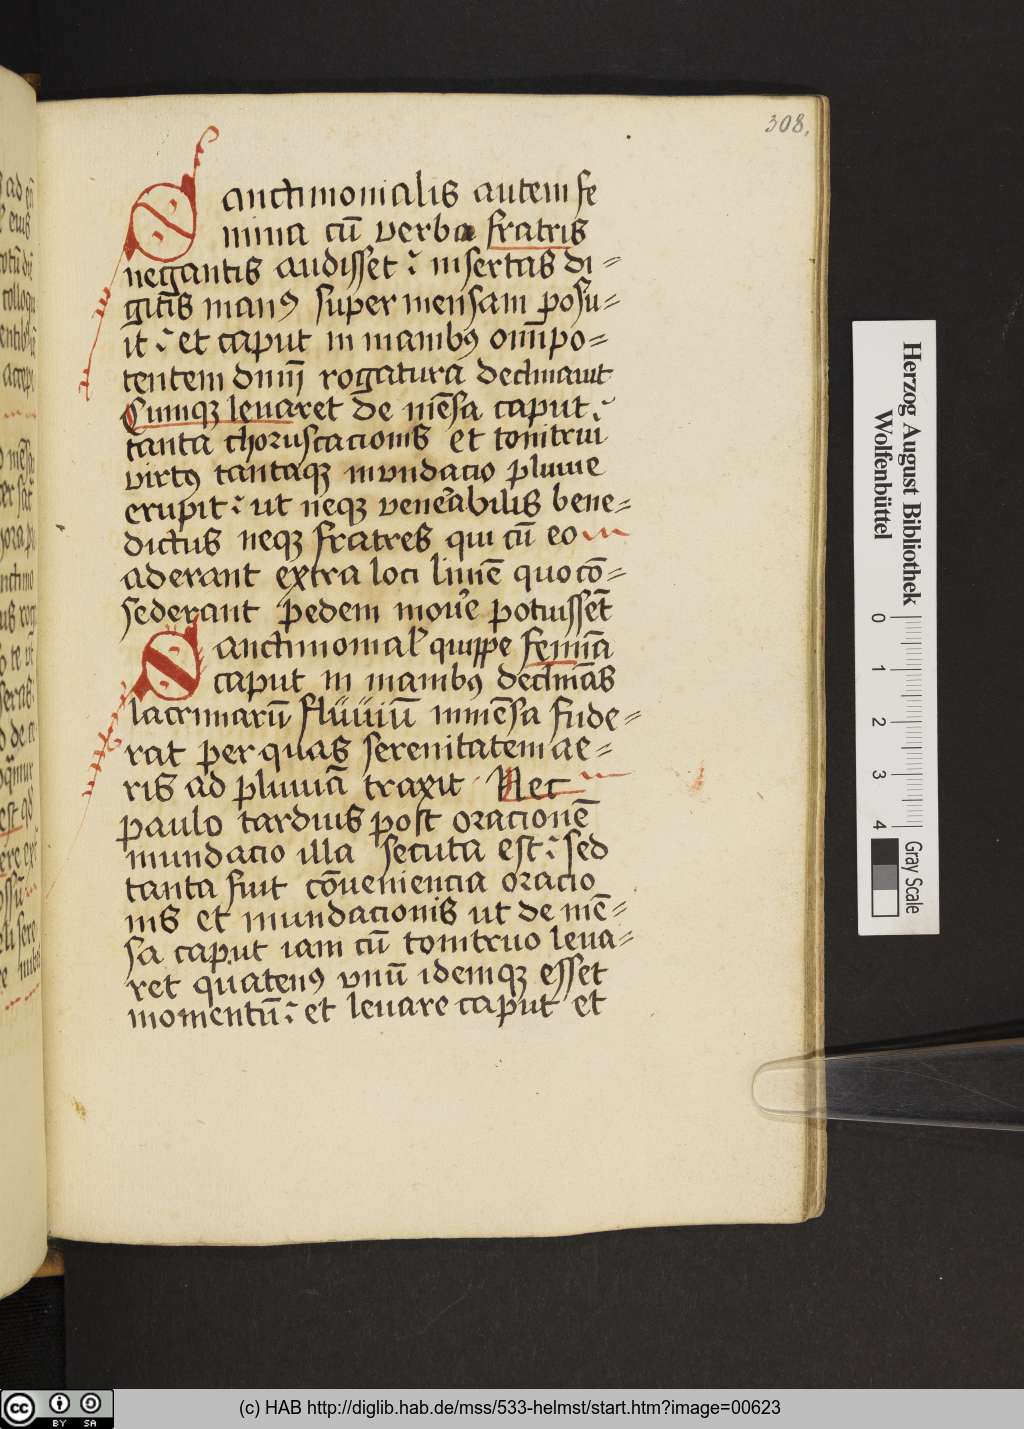 308.
Sanctimonialis autem fe
mina cū verba fratris
negantis audisset : insertas di=
gitis manꝰ super mensam posu=
it : et caput in manibꝰ omīpo=
tentem dnm̄ rogatura declinauit
Cumqꝫ leuaret de mēsa caput :
tanta choruscacionis et tonitrui
virtꝰ tantaqꝫ inundacio pluuie
erupit : ut neqꝫ venerabilis bene=
dictus neqꝫ fratres qui cū eo
aderant extra loci limē quo cō=
sederant pedem mou'e potuissēt
Sanctimonial' quippe femīa
caput in manibꝰ declinās
lacrimarū fluuiū in mēsa fude=
rat per quas serenitatem ae=
ris ad pluuiā traxit Nec
paulo tardius post oracionē
inundacio illa secuta est : sed
tanta fuit cōueniencia oracio
nis et inundacionis ut de mē=
sa caput iam cū tonitruo leua=
ret quatenꝰ vnū idemqꝫ esset
momentū : et leuare caput et
Herzog August Bibliothek
Wolfenbüttel
0 1 2 3 4
Gray Scale
(c) HAB http://diglib.hab.de/mss/533-helmst/start.htm?image=00623
cc BY SA